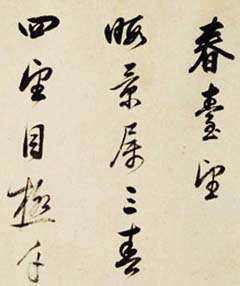 春臺望
暇景属三春
四望目極千